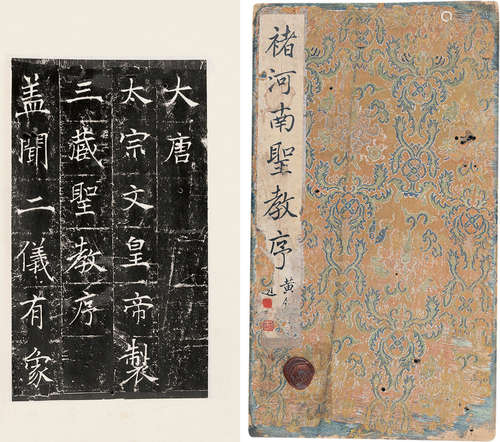 大唐
太宗文皇帝製
三藏聖教序
盖聞二儀有象
褚河南聖教序
黄